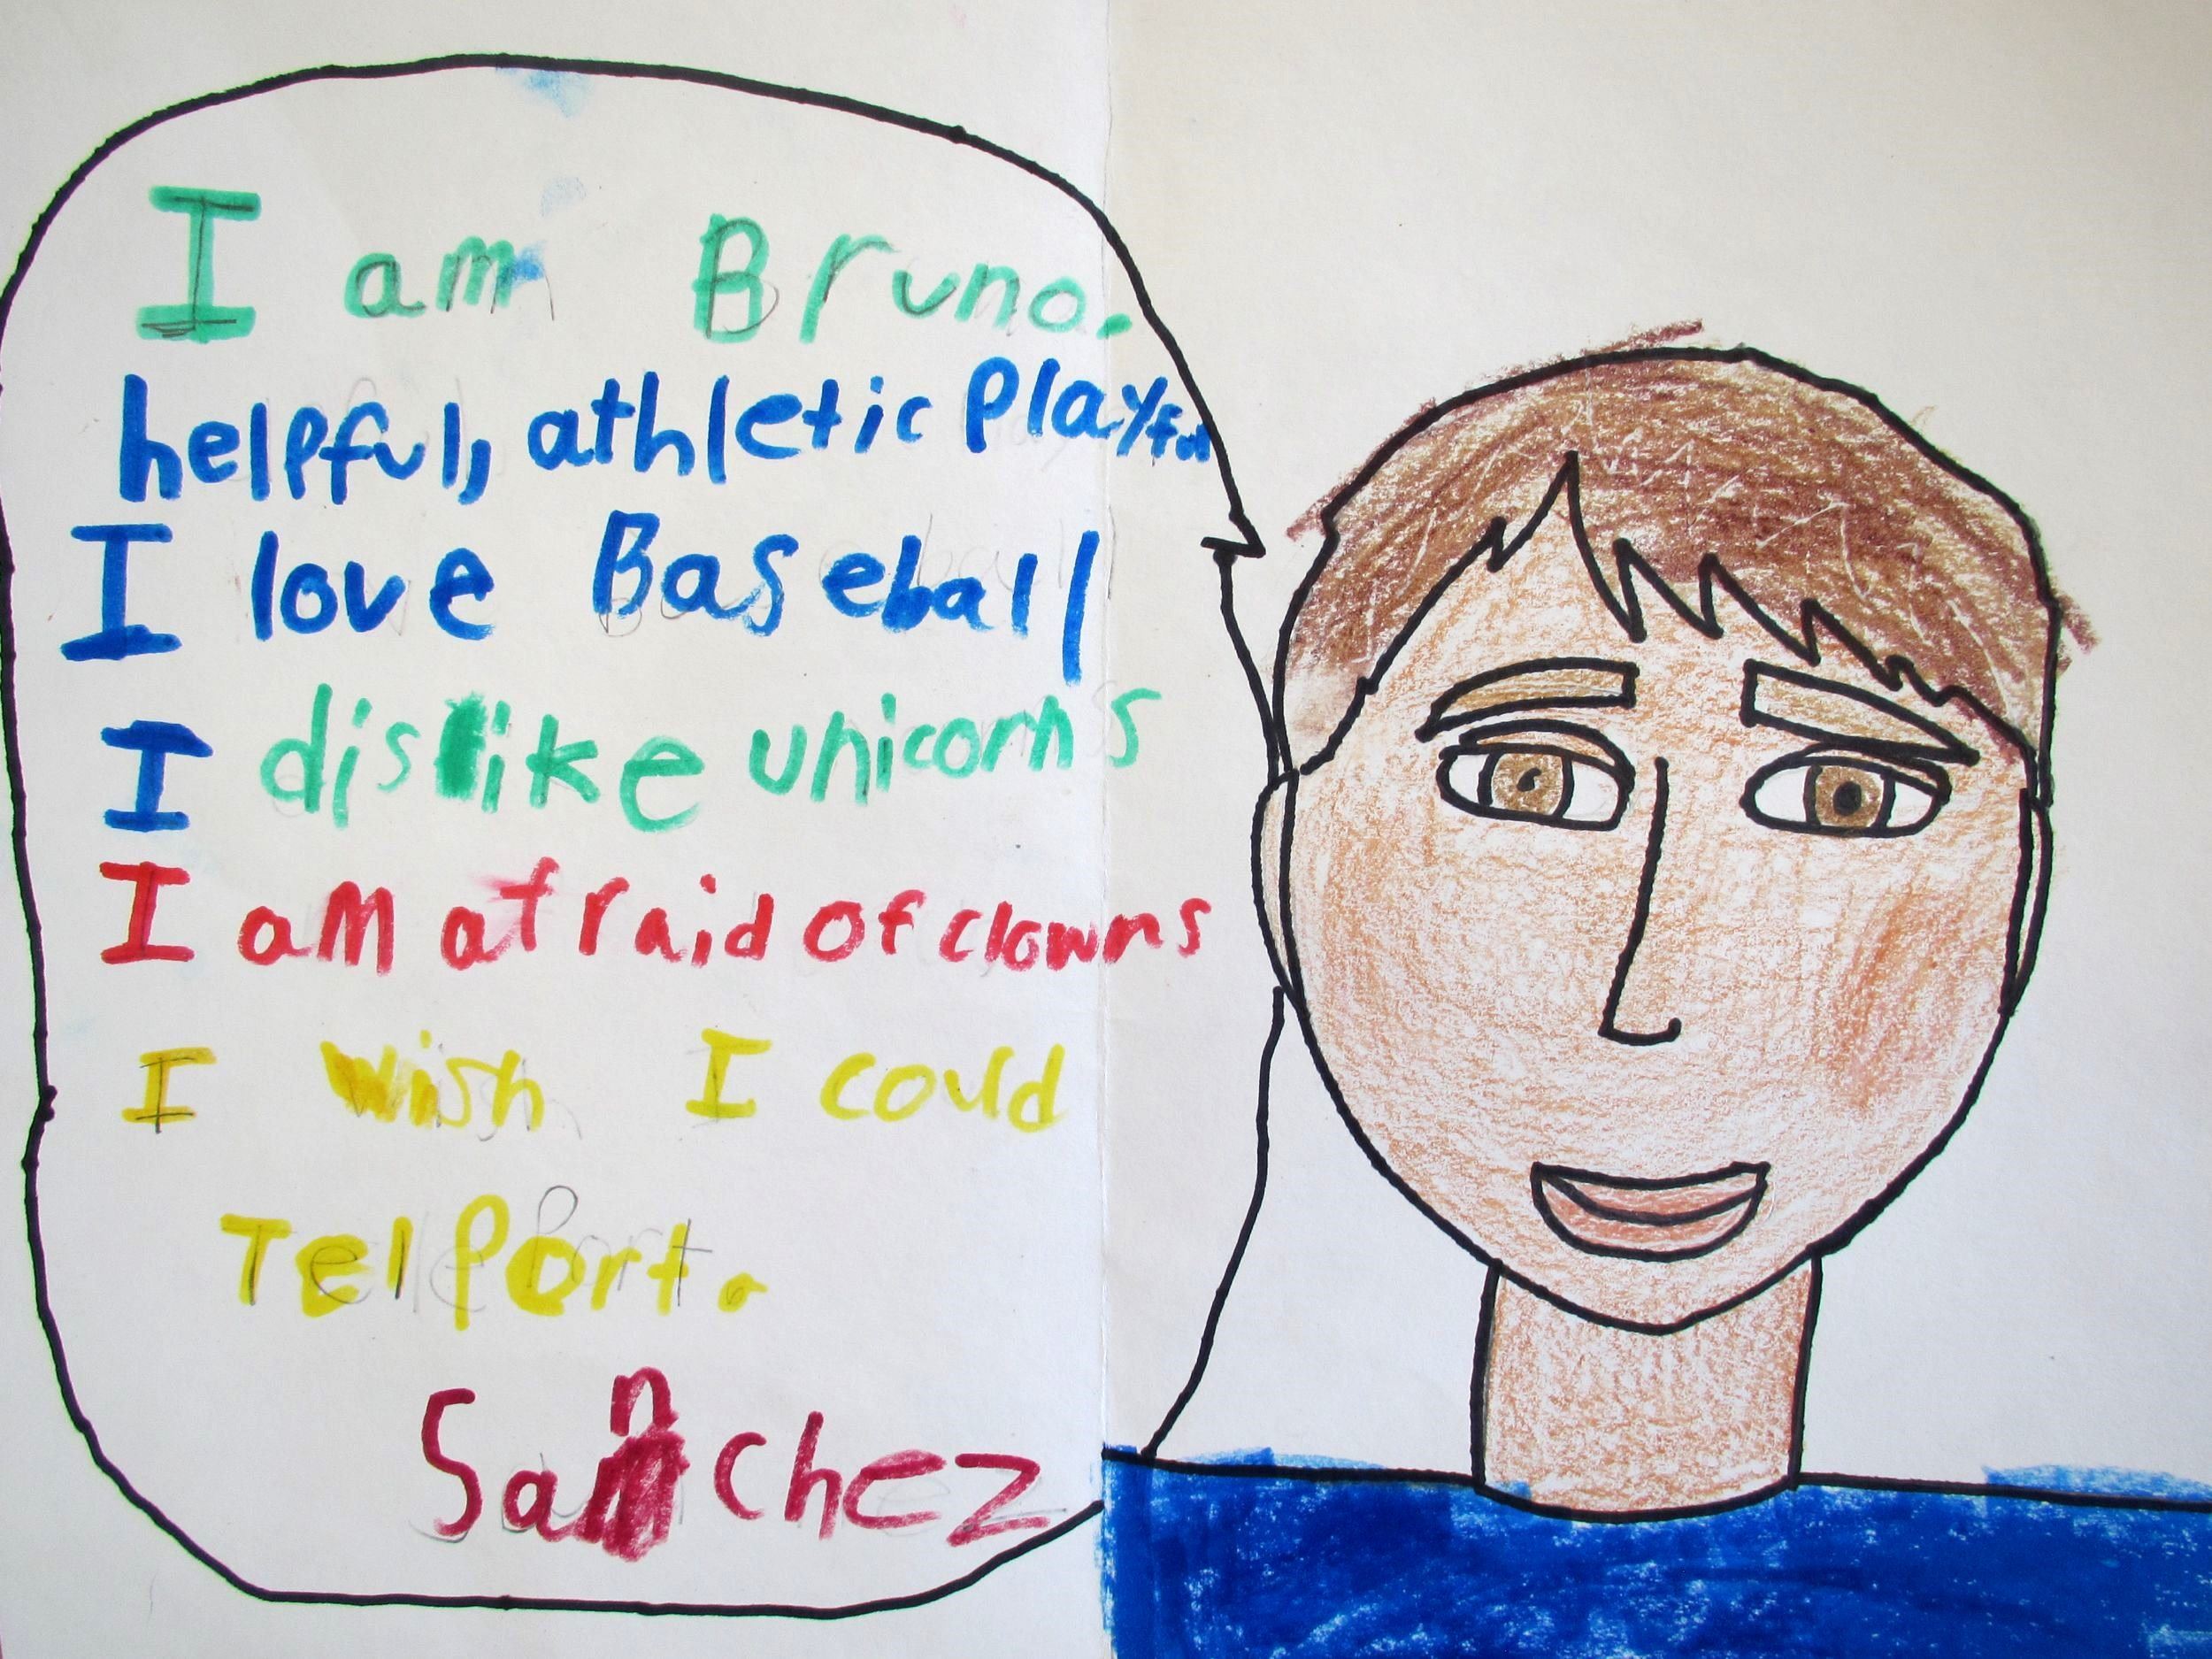 I am Bruno.
helpful, athletic Playful
I love Baseball
I dislike unicorns
I am afraid of clowns
I wish I could
Telport.
Sanchez